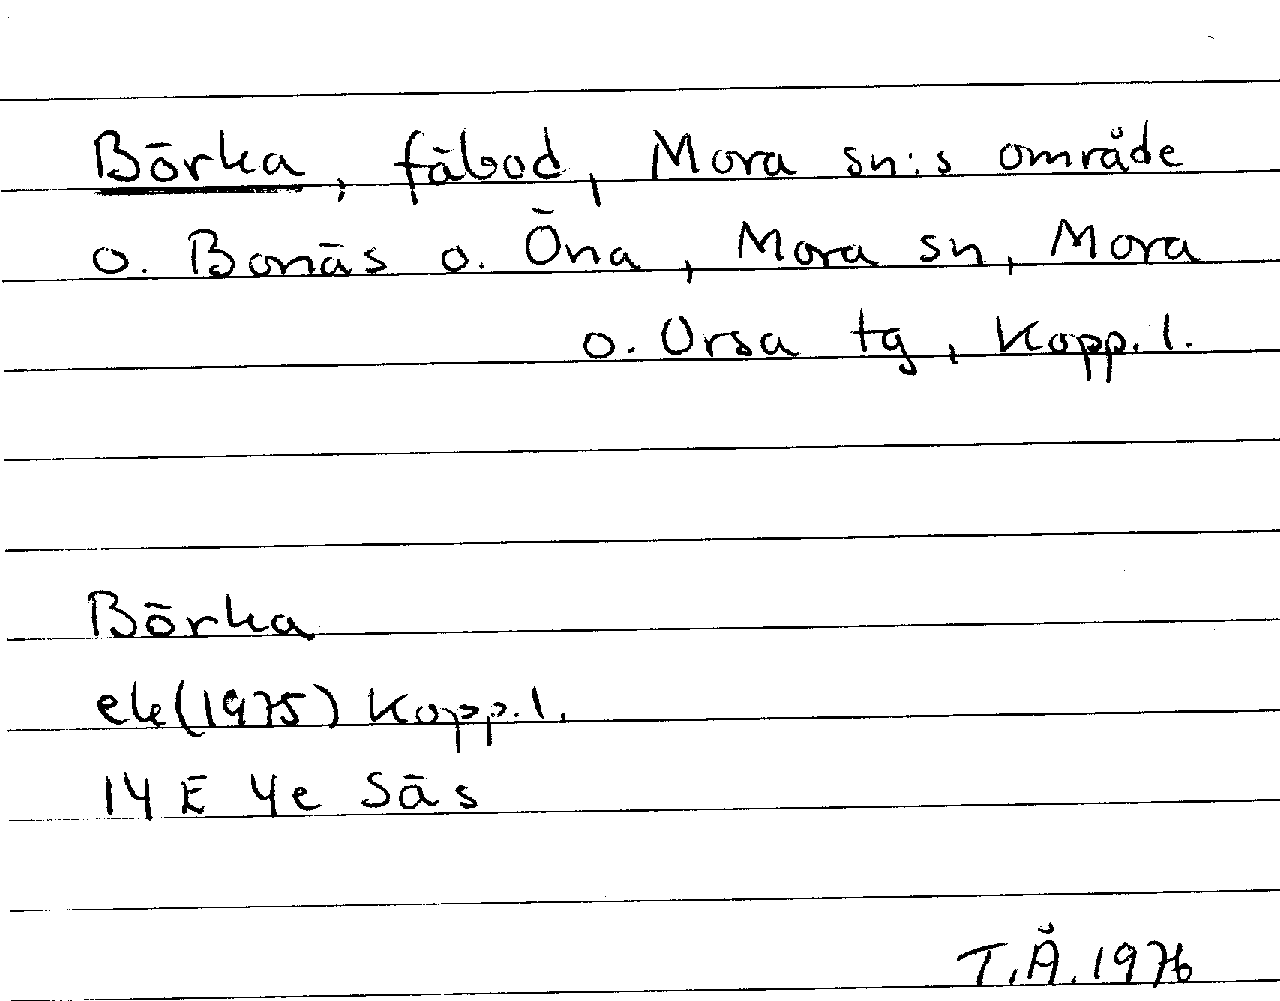 Börka, fäbod, Mora sn:s område
o. Bonäs o. Öna, Mora sn, Mora
o. Orsa tg, Kopp. l.
Börka
ek(1975) Kopp. l.
14 E 4e Säs
T.Å. 1976